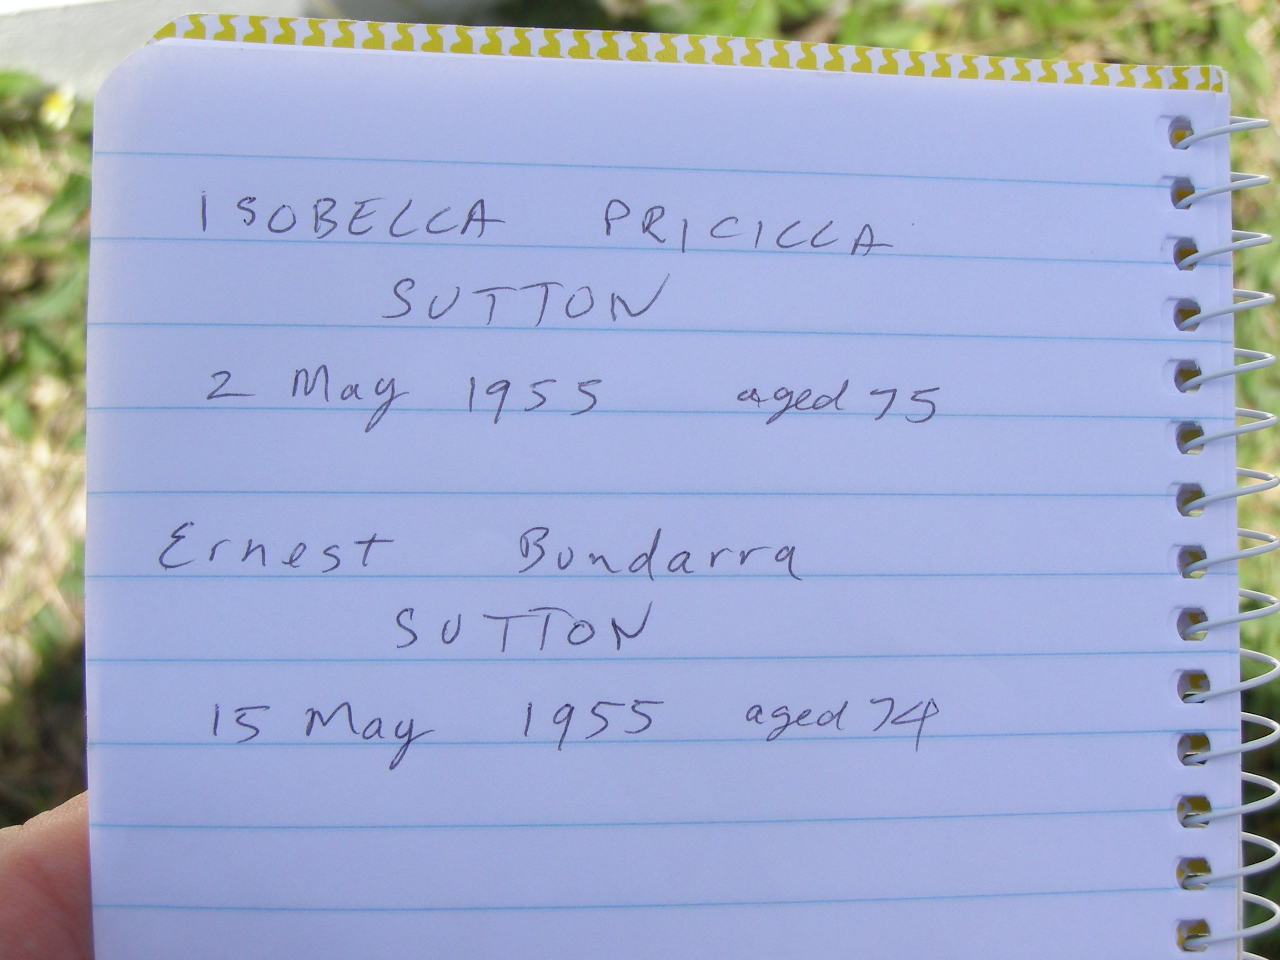 ISOBELLA PRICILLA
SUTTON
2 May 1955 aged 75
Ernest Bundarra
SUTTON
15 May 1955 aged 74